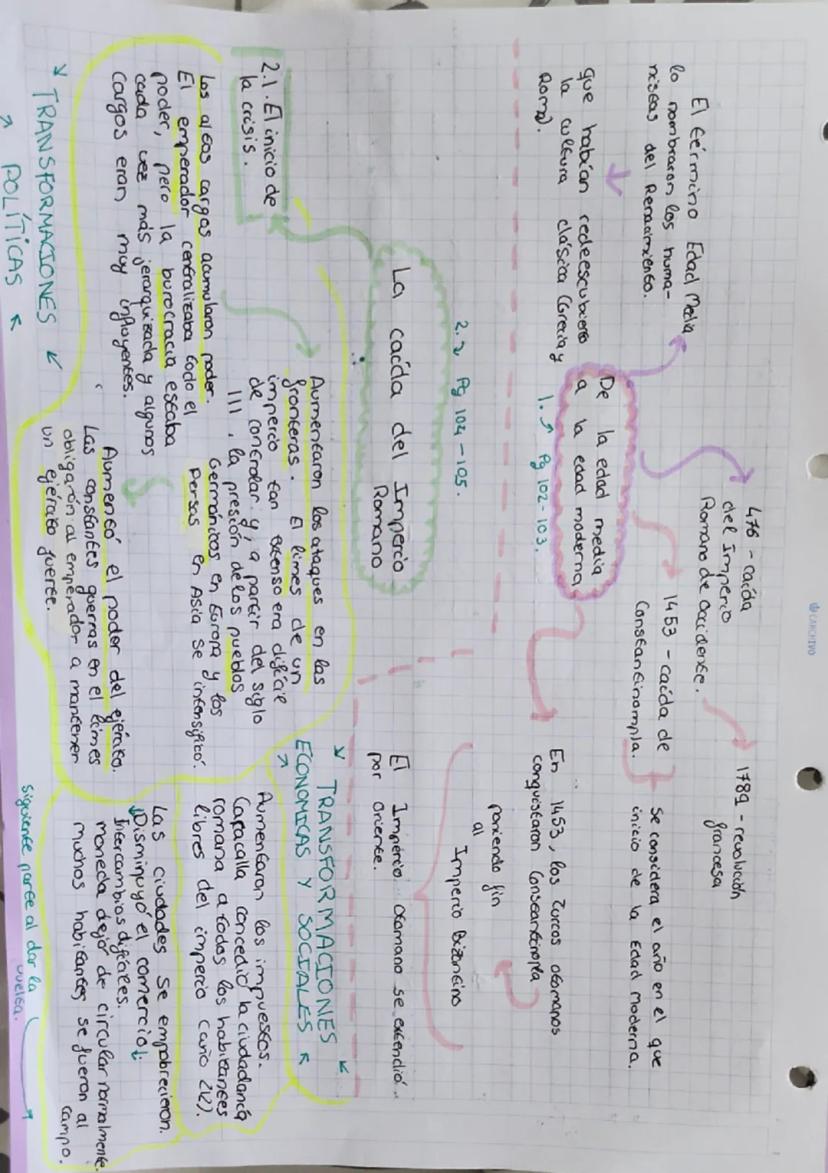 CARCHIVO
476 - caída
del Imperio
Romano de Occidente.
1789 - revolución
francesa
El término Edad Media
lo nombraron los huma-
nistas del Renacimiento.
1453 - caída de
Constantinompla.
Se considera el año en el que
inicio de la Edad Moderna.
que habían redeescubierto
la cultura clásica (Grecia y
Roma).
De la edad media
a la edad moderna
1. → Pg 102-103.
En 1453, los turcos otomanos
conquistaron Constantinopla
poniendo fin
al
Imperio Bizantino
El Imperio otomano se extendió
por oriente.
2. → Pg 104-105.
La caída del Imperio
Romano
2.1. El inicio de
la crisis.
Los altos cargos acumularon poder.
El emperador centralizaba todo el
poder, pero la burocracia estaba
cada vez más jerarquizada y algunos
cargos eran muy influyentes.
Aumentaron los ataques en las
fronteras. El limes de un
imperio tan extenso era difícil
de controlar y, a partir del siglo
III, la presión de los pueblos
Germánicos en Europa y los
Persas en Asia se intensificó.
Aumentó el poder del ejército.
Las constantes guerras en el limes
obligaron al emperador a mantener
un ejército fuerte.
TRANSFORMACIONES
POLÍTICAS
TRANSFORMACIONES
ECONOMICAS Y SOCIALES
Aumentaron los impuestos.
Caracalla concedió la ciudadanía
romana a todos los habitantes
libres del imperio (año 212).
Las ciudades se empobrecieron.
Disminuyó el comercio:
Intercambios difíciles.
moneda dejó de circular normalmente.
muchos habitantes se fueron al
campo.
Siguiente parte al dar la
vuelta.